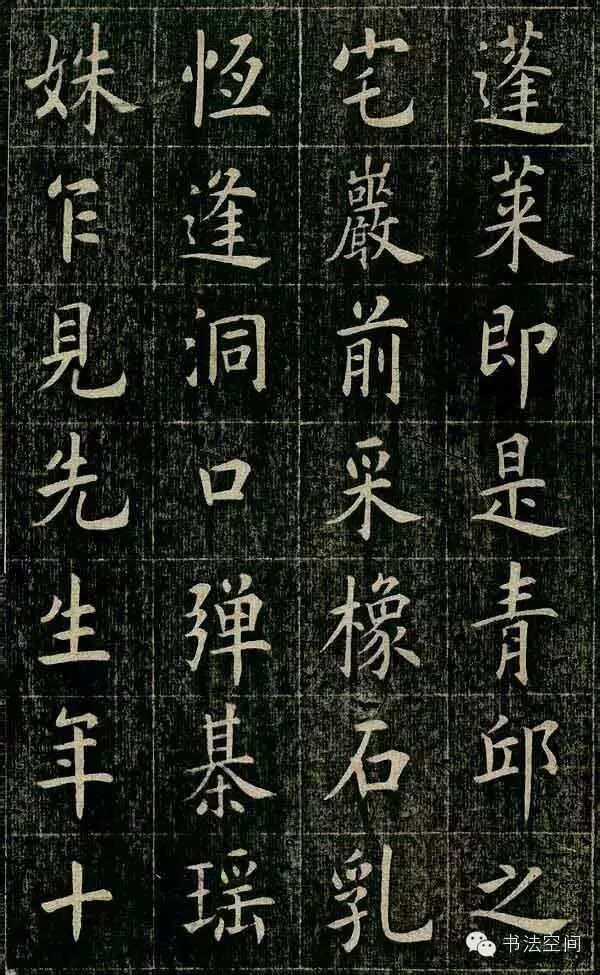 蓬莱即是青邱之
宅巖前采橡石乳
恆逢洞口弹棊瑶
姝乍見先生年十
书法空间